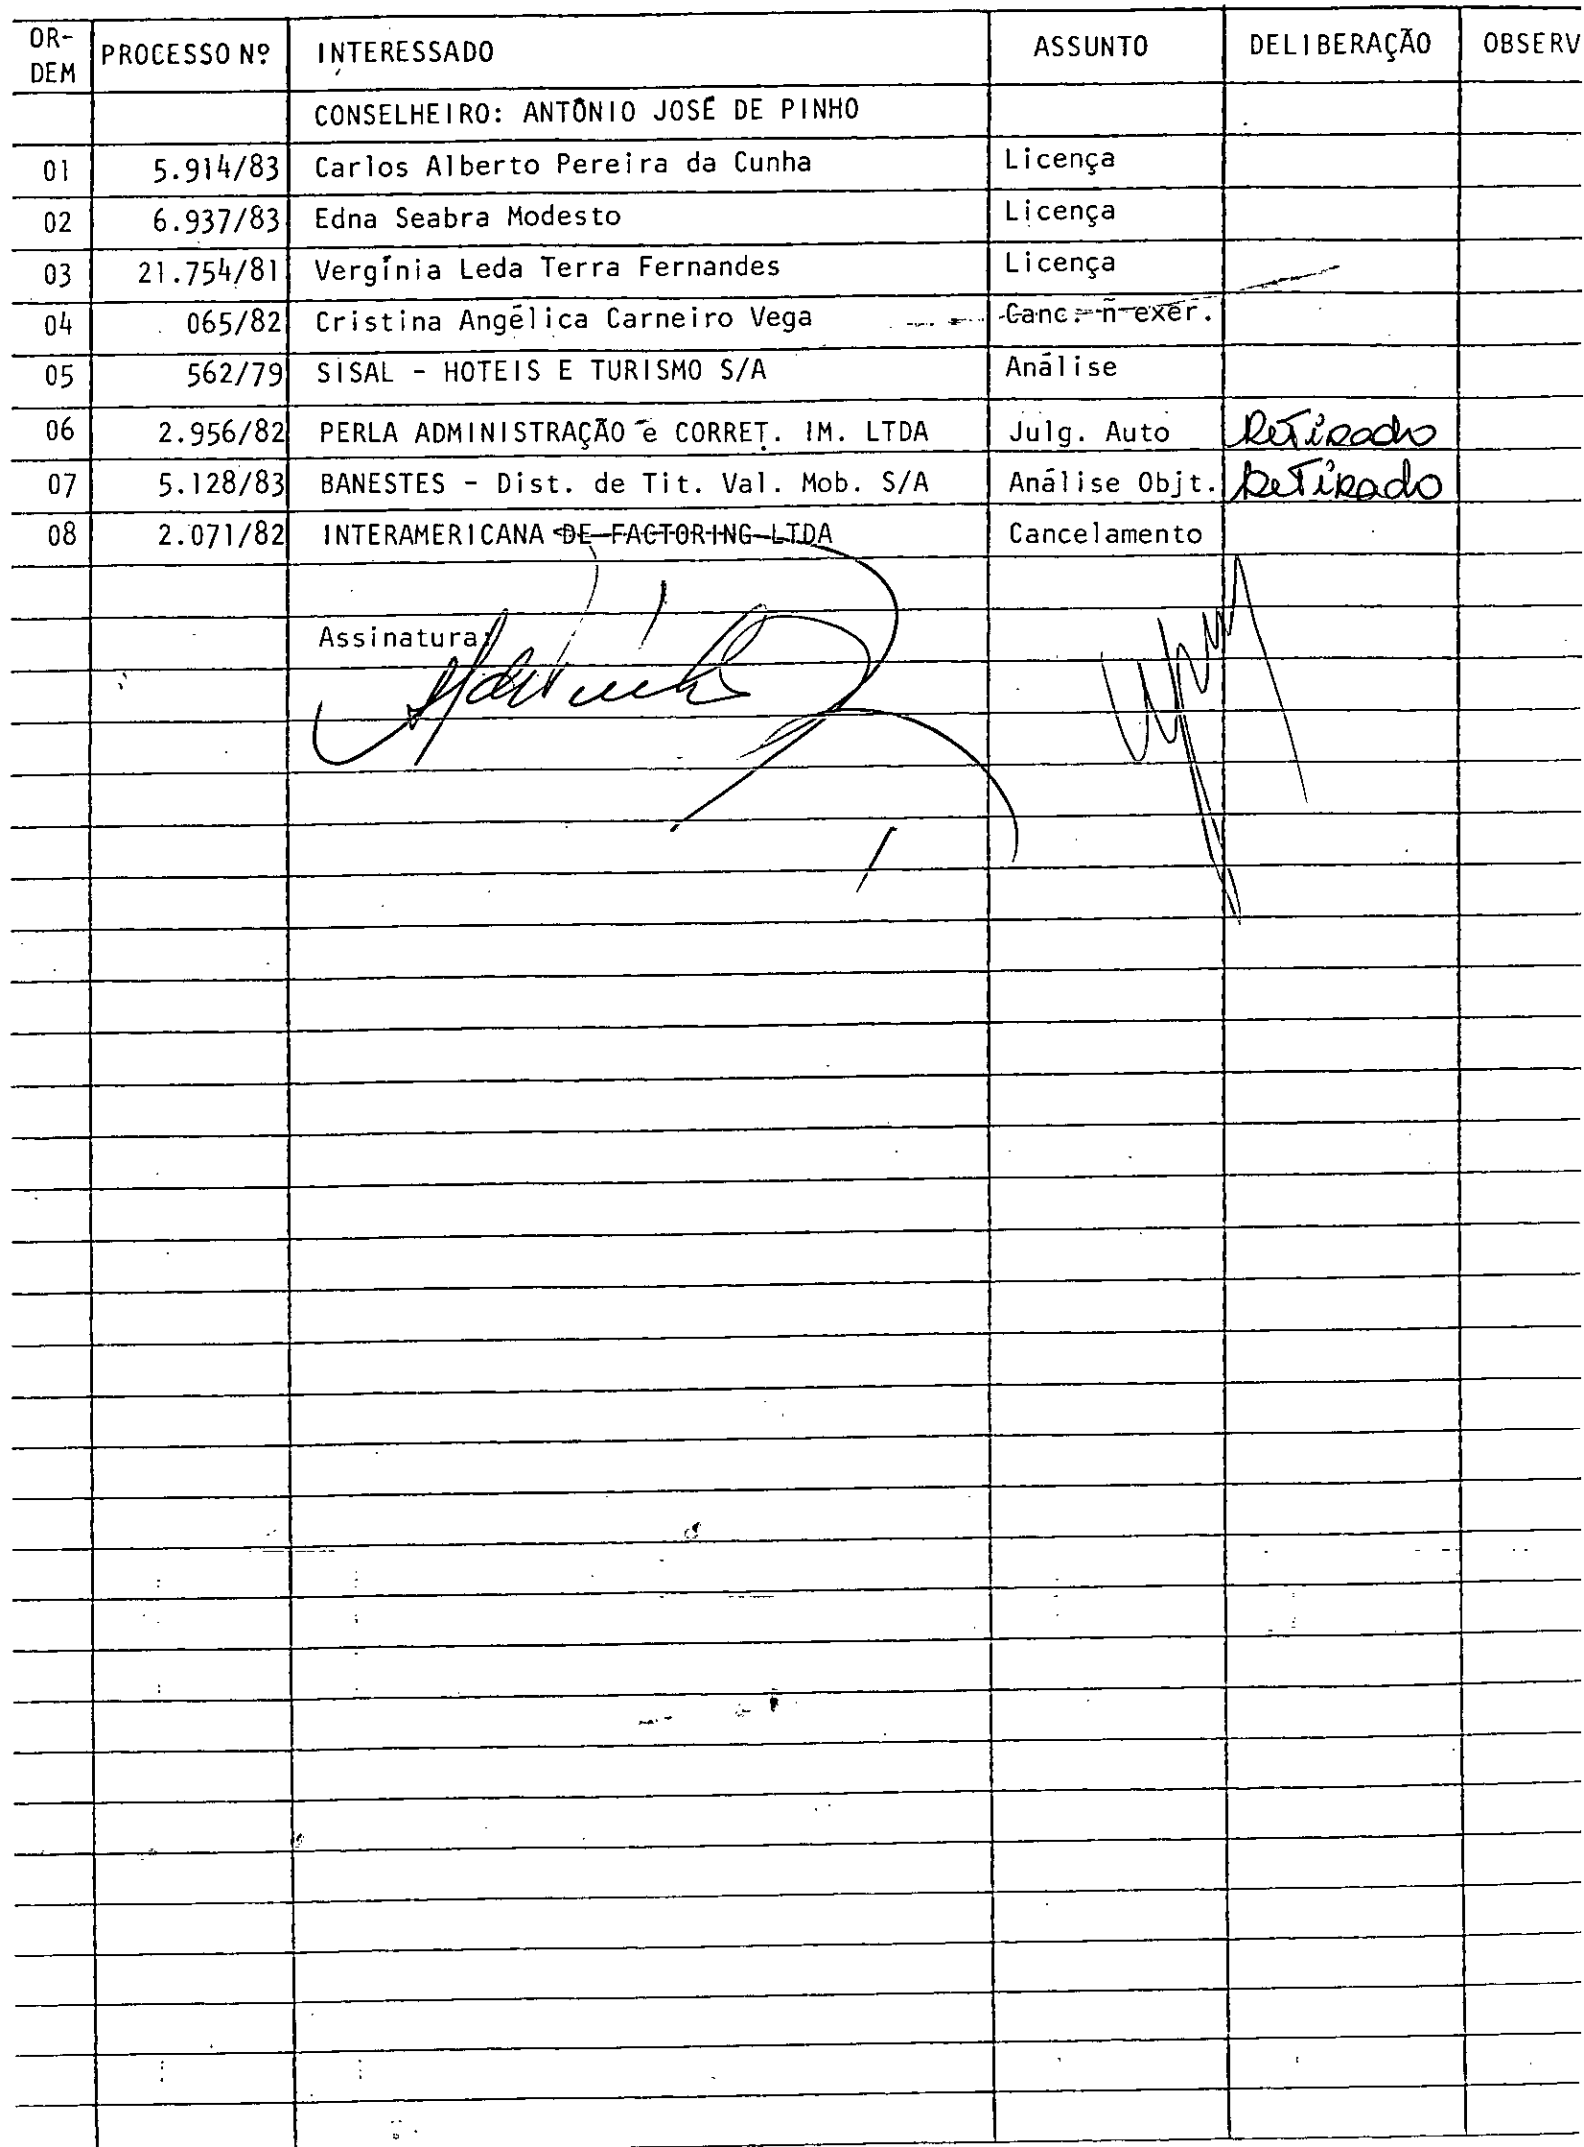 OR-DEM PROCESSO Nº INTERESSADO ASSUNTO DELIBERAÇÃO OBSERV
CONSELHEIRO: ANTÔNIO JOSÉ DE PINHO
01 5.914/83 Carlos Alberto Pereira da Cunha Licença
02 6.937/83 Edna Seabra Modesto Licença
03 21.754/81 Vergínia Leda Terra Fernandes Licença
04 065/82 Cristina Angélica Carneiro Vega Canc. ñ exer.
05 562/79 SISAL - HOTEIS E TURISMO S/A Análise
06 2.956/82 PERLA ADMINISTRAÇÃO e CORRET. IM. LTDA Julg. Auto Retirado
07 5.128/83 BANESTES - Dist. de Tit. Val. Mob. S/A Análise Objt. Retirado
08 2.071/82 INTERAMERICANA DE FACTORING LTDA Cancelamento
Assinatura: